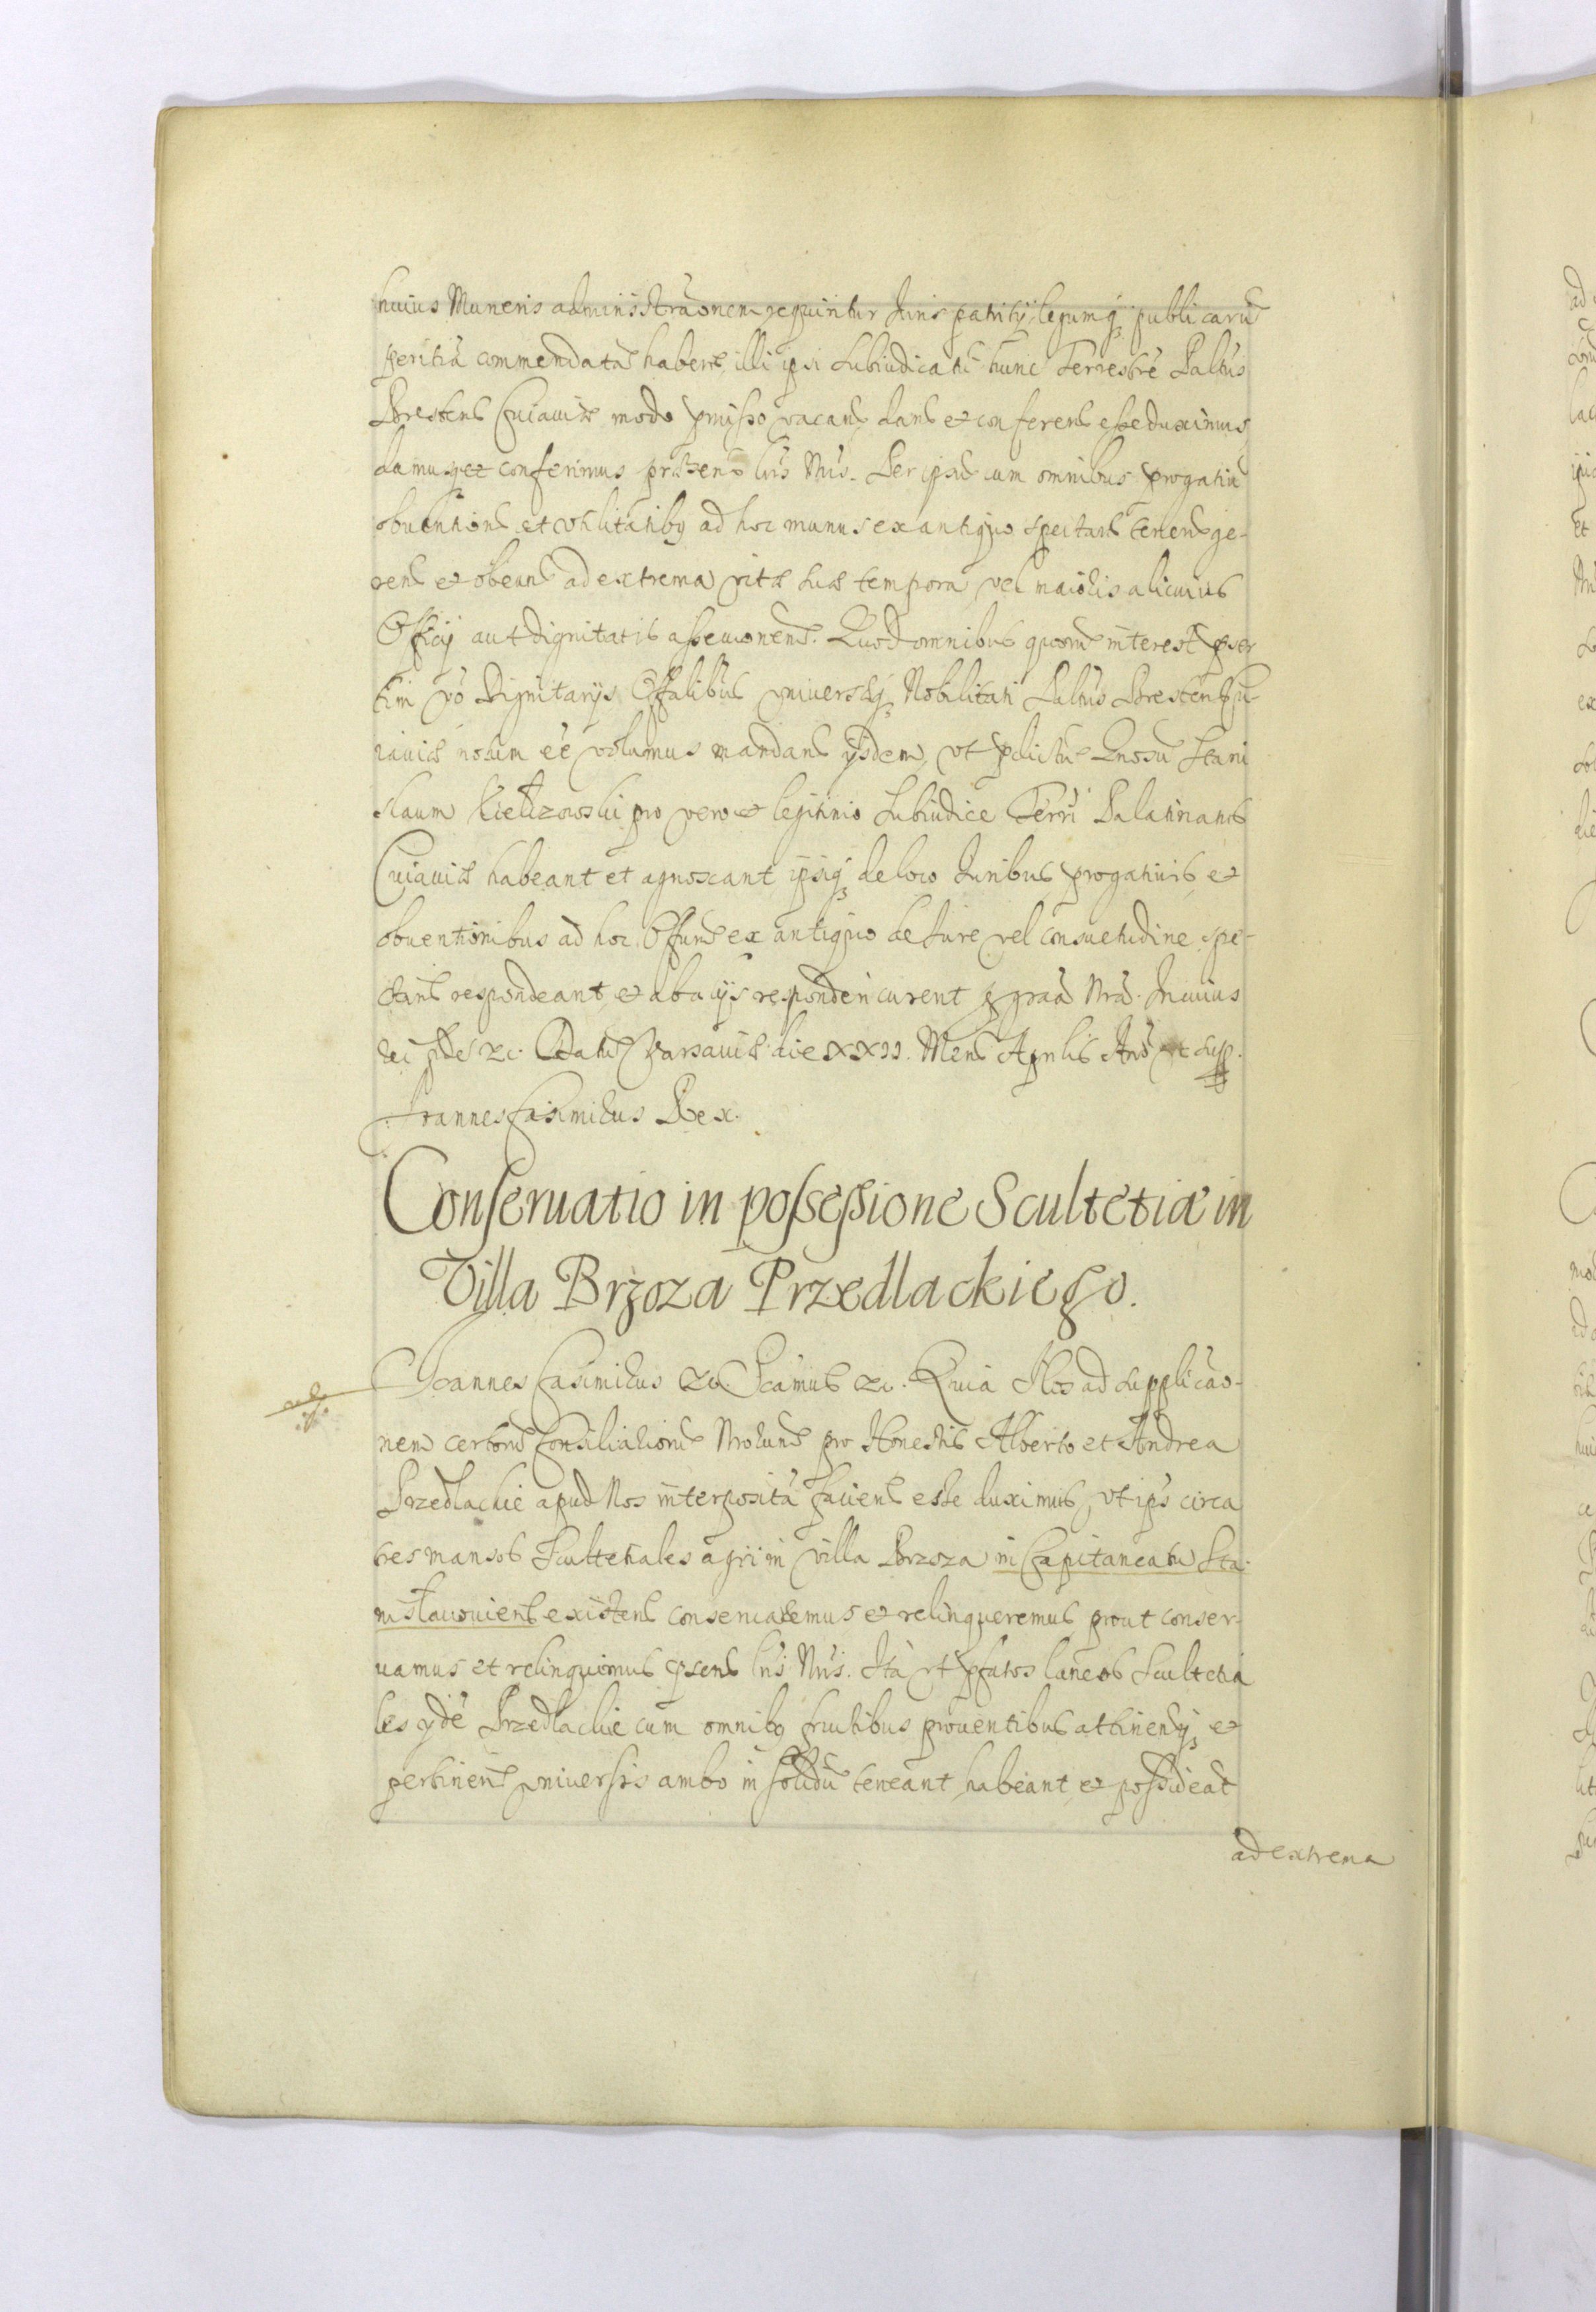 huius Muneris administraōnem requiritur Iuris patrity, legumq; publicarū
peritiā commendatā habens, illi ipsi Subiudicatū hunc Terrestrē Palūs
Brestens Cuiaviæ modo pmisso vacans dans et conferens esse duximus
damusq et conferimus præsens lrīs Nrīs. Per ipsū cum omnibus progativ
obventions et vtilitatibq ad hoc munus ex antiquo spectans tenens ge-
rens et obeuns ad extrema vitæ suæ tempora vel maioris alicuius
Officij aut dignitatis assecuonem. Quod omnibus quorū interest pser
tim vō Dignitarijs Offālibus vniversæq; Nobilitati Palūs Brestens Cu-
iaviæ notum eē volumus mandans ijsdem, vt pdictū Gnosū Stani
slaum Kiełczewski pro vero et legitimo Subiudice Terrī Palatinatus
Cuiaviæ habeant et agnoscant, ipsiq; de loco Iuribus progativis et
obventionibus ad hoc Offūm ex antiquo de Iure vel consuetudine spe-
ctans respondeant, et ab alijs responderi curent p graā Nrā. In cuius
rei fidē &c. Datū Varsaviæ die XXII. Mens Aprilis Anō vt supp.
Ioannes Casimirus Rex.
Conseruatio in possessione Scultetiæ in
Villa Brzoza Przedlackiego.
Ioannes Casimirus &c. Scamus &c. Quia Nos ad supplicaō-
nem certorū Consiliariorū Nrorum pro Honestis Alberto et Andrea
Przedlackie apud Nos interpositā faciens esse duximus, vt ipōs circa
tres mansos Scultetiales agri in villa Brzoza in Capitaneatu Sta-
nisławouiens existens conservaremus et relinqueremus, prout conser-
uamus et relinquimus psens lrīs Nrīs. Ita vt pfatos laneos Scultetia
les ijdē Przedlackie cum omnibq fructibus prouentibus attinensq; et
pertinens vniversis ambo in solidū teneant, habeant, et possideāt
ad extrema